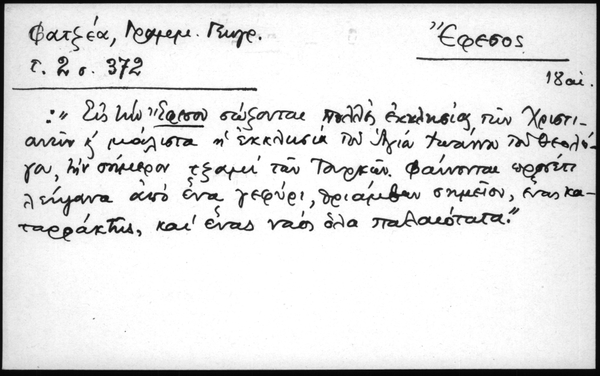 Φατζέα, Γραμμ. Γεωγρ.
τ. 2 σ. 372
Ἔφεσος.
18 αἰ.
:" Εἰς τὴν Ἔφεσον σώζονται πολλὲς ἐκκλησίες τῶν Χριστι-
ανῶν κ' μάλιστα ἡ ἐκκλησιά τοῦ Ἁγίου Ἰωάννου τοῦ Θεολό-
γου, τὴν σήμερον τζαμί τῶν Τουρκῶν. Φαίνονται προσέτι
λείψανα ἀπό ἕνα γεφύρι, θριάμβων σημεῖον, ἕνας κα-
ταρράκτης, καί ἕνας ναός ὅλα παλαιότατα."